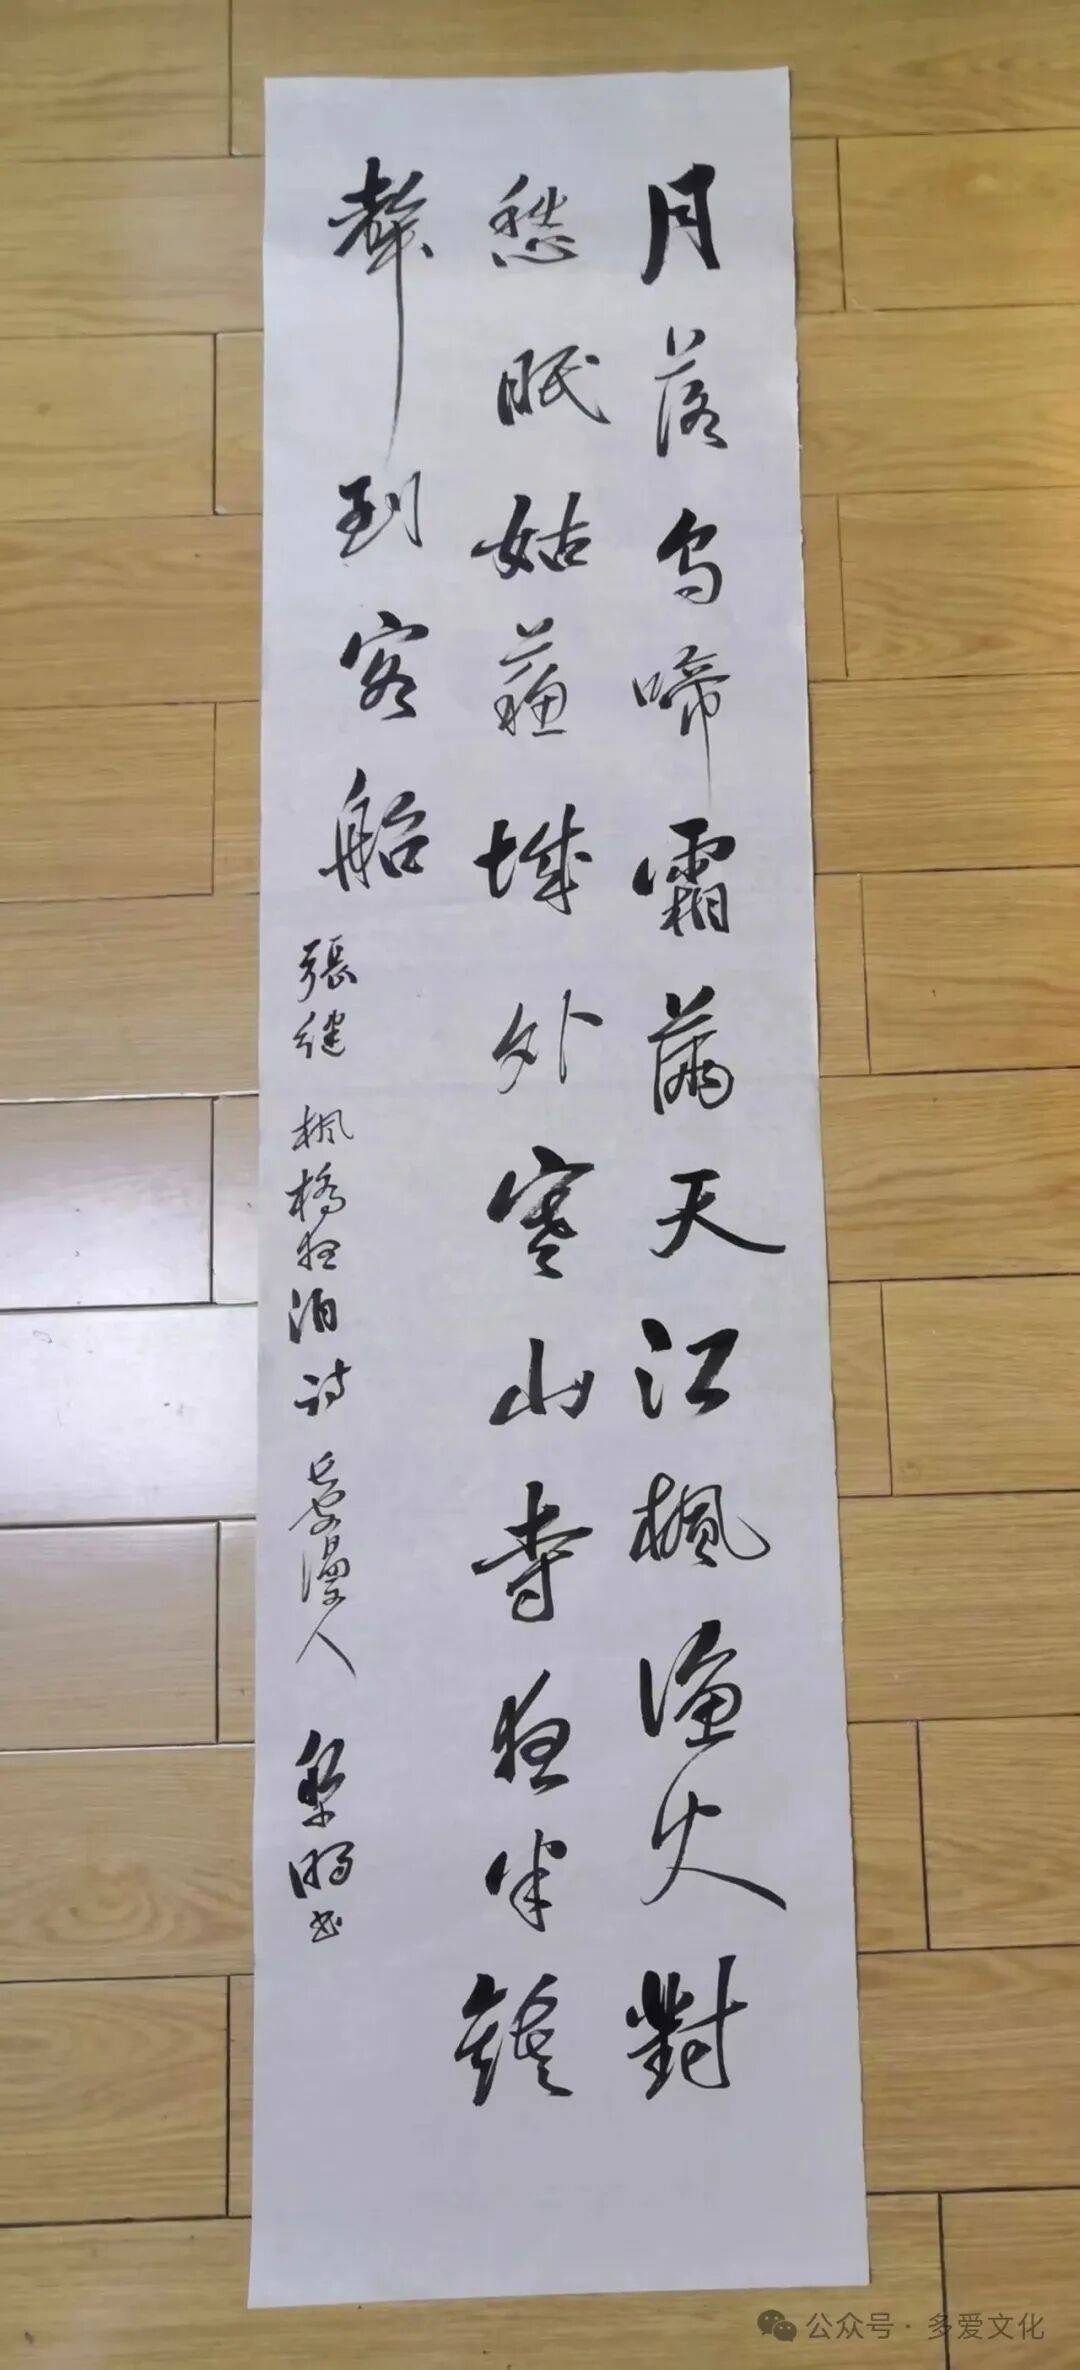 月落烏啼霜滿天江楓漁火對
愁眠姑蘇城外寒山寺夜半鐘
聲到客船
張継 楓橋夜泊詩 漫人 黎明书
公众号 · 多爱文化